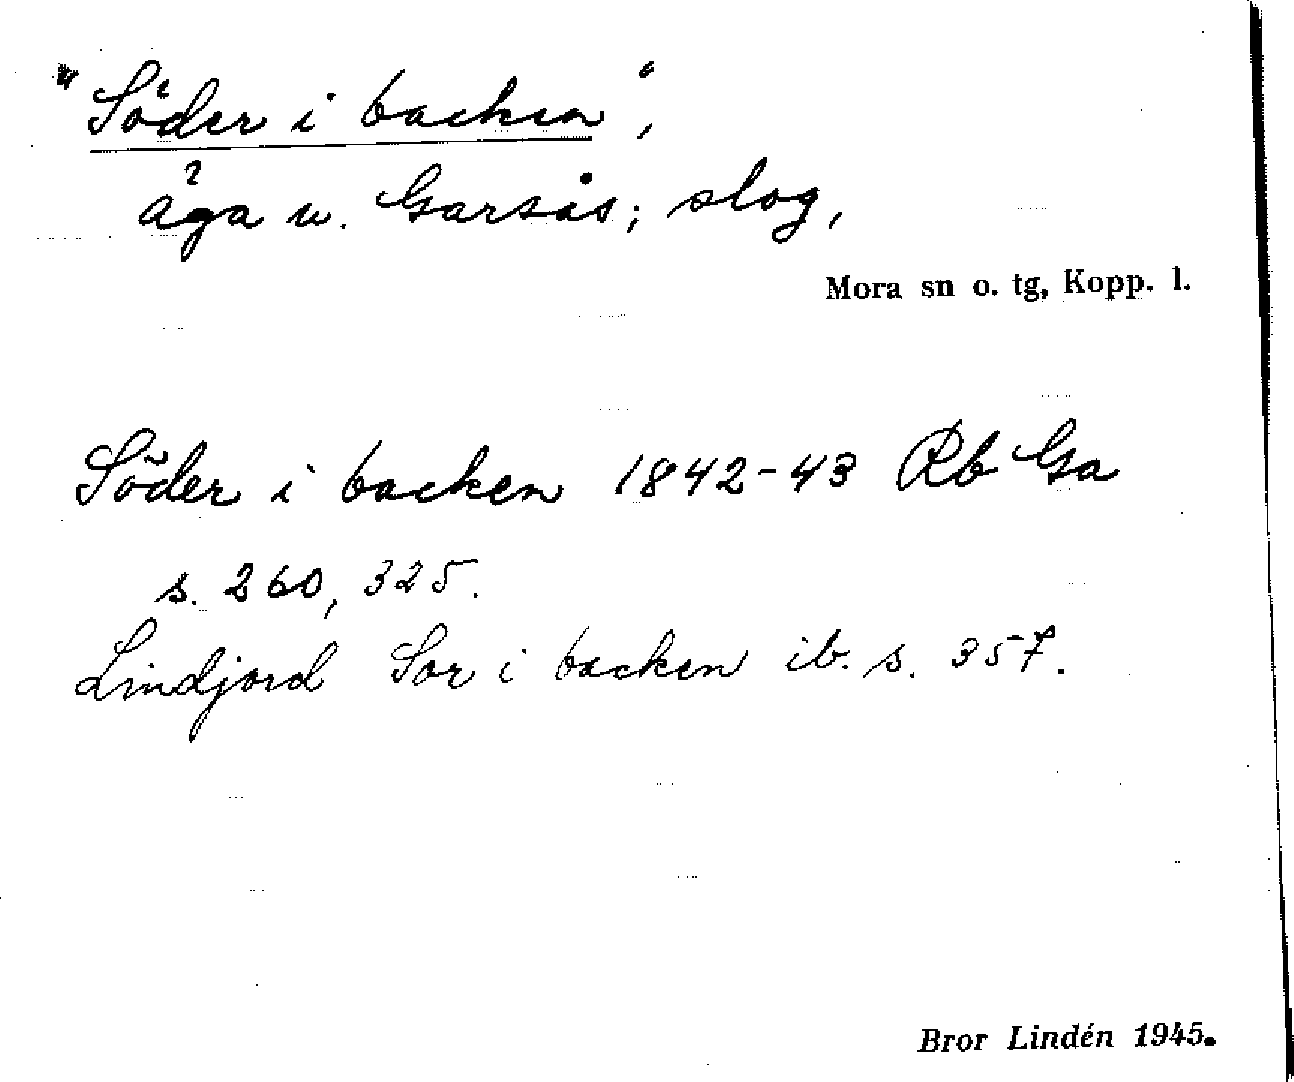 "Söder i backen",
äga u. Garsås; slog,
Mora sn o. tg, Kopp. l.
Söder i backen 1842-43 Rb Ga
s. 260, 325.
Lindjord Sör i backen ib. s. 357.
Bror Lindén 1945.